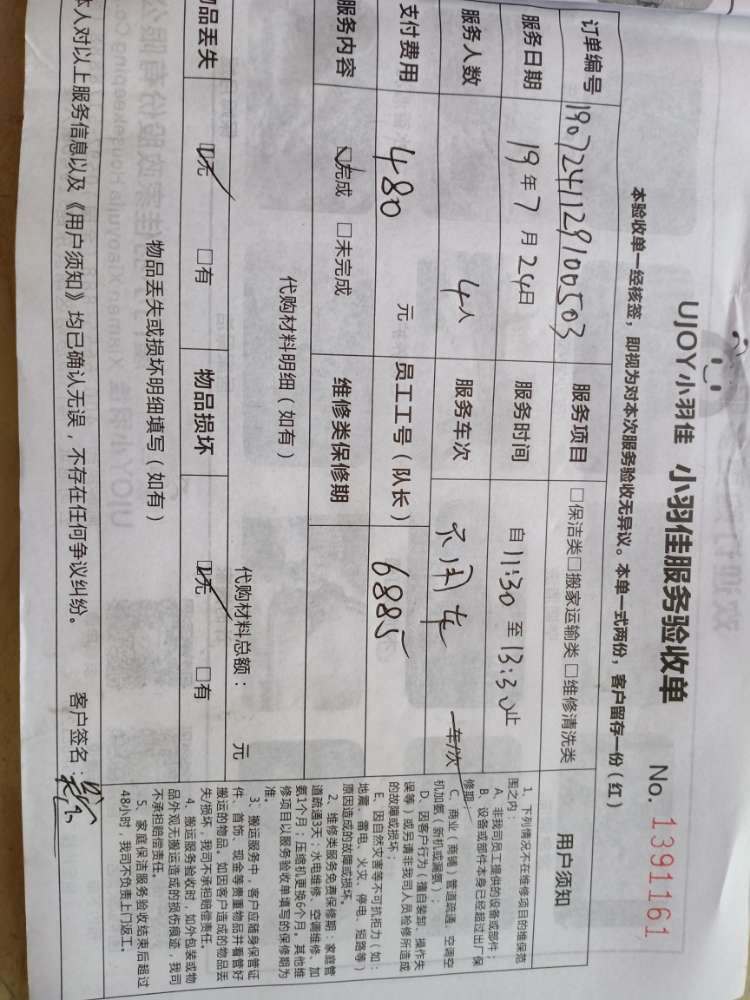 UJOY小羽佳 小羽佳服务验收单 No. 1391161
本验收单一经核签，即视为对本次服务验收无异议。本单一式两份，客户留存一份（红）
订单编号 1907241129100503 服务项目 □保洁类□搬家运输类□维修清洗类
服务日期 19年7月24日 服务时间 自11:30至13:30止
服务人数 4人 服务车次 不用车 车/次
支付费用 480 元 员工工号（队长） 6885
服务内容 ☑完成 □未完成 维修类保修期
代购材料明细（如有）
代购材料总额： 元
物品丢失 ☑无 □有 物品损坏 ☑无 □有
物品丢失或损坏明细填写（如有）
本人对以上服务信息以及《用户须知》均已确认无误，不存在任何争议纠纷。 客户签名：
用户须知
1、下列情况不在维修项目的维保范
围之内：
A、非我司员工提供的设备或部件；
B、设备或部件本身已经超过出厂保
修期；
C、商业（商铺）管道疏通、空调空
机加氨（新机或漏氨）；
D、因客户行为（擅自装卸、操作失
误等）或另请非我司人员检修所造成
的故障或损坏；
E、因自然灾害等不可抗拒力（如：
地震、雷电、火灾、停电、短路等）
原因造成的故障或损坏。
2、维修类服务免费保修期：家庭管
道疏通3天；水电维修、空调维修、加
氨1个月；压缩机更换6个月。其他维
修项目以服务验收单填写的保修期为
准。
3、搬运服务中，客户应随身保管证
件、首饰、现金等贵重物品并看管好
搬运的物品。如因客户造成的物品丢
失/损坏，我司不承担赔偿责任。
4、搬运服务验收时，如外包装或物
品外观无搬运造成的损伤痕迹，我司
不承担赔偿责任。
5、家庭保洁服务验收结束后超过
48小时，我司不负责上门返工。